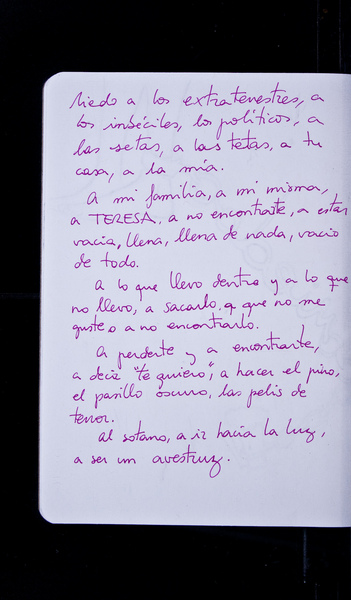 Miedo a los extraterrestres, a
los imbéciles, los políticos, a
las setas, a las tetas, a tu
casa, a la mía.
A mi familia, a mi misma,
a TERESA, a no encontrarte, a estar
vacía, llena, llena de nada, vacío
de todo.
A lo que llevo dentro y a lo que
no llevo, a sacarlo, a que no me
guste o a no encontrarlo.
A perderte y a encontrarte,
a decir "te quiero", a hacer el pino,
el pasillo oscuro, las pelis de
terror.
Al sotano, a ir hacia la luz,
a ser un avestruz.